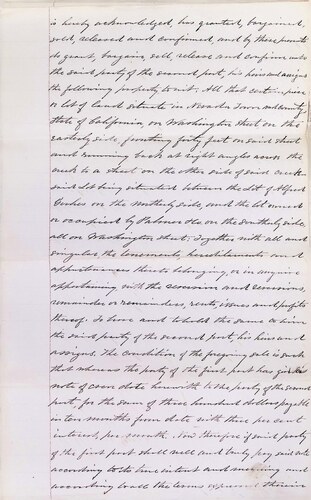 is hereby acknowledged, has granted, bargained,
sold, released and confirmed, and by these presents
do grant, bargain, sell, release and confirm unto
the said party of the second part, his heirs and assigns
the following property to wit: All that certain piece
or lot of land situate in Nevada Town and County
State of California, on Washington street on the
easterly side, fronting forty feet on said street
and running back at right angles across the
creek to a street on the other side of said creek
said lot being situated between the lot of Alfred
on the northerly side, and the lot owned
or occupied by on the southerly side
all on Washington street. Together with all and
singular the tenements, hereditaments and
appurtenances thereto belonging, or in anywise
appertaining with the reversion and reversions,
remainder or remainders, rents, issues and profits
thereof. To have and to hold the same to him
the said party of the second part, his heirs and
assigns. The condition of the foregoing sale is such
that whereas the party of the first part has given
note of even date herewith to the party of the second
part, for the sum of three hundred dollars payable
in ten months from date with three per cent
interest, per month. Now therefore if said party
of the first part shall well and truly pay said note
according to its true intent and meaning and
according to all the terms therein